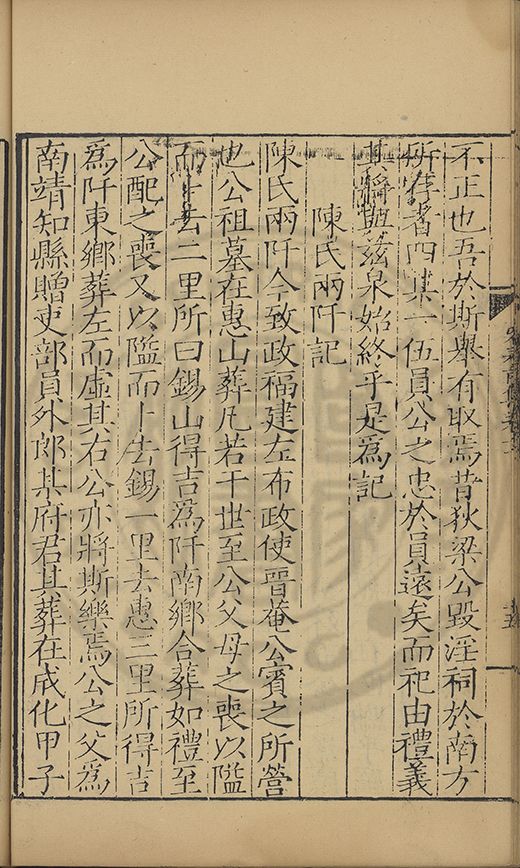 不正也吾於斯舉有取焉昔狄梁公毀淫祠於南方
所存者四其一伍員公之忠於員遠矣而祀由禮義
其將與茲泉始終乎是爲記
陳氏兩阡記
陳氏兩阡今致政福建左布政使晉菴公賓之所營
也公祖墓在惠山葬凡若干世至公父母之喪以隘
而卜去二里所曰錫山得吉爲阡南鄉合葬如禮至
公配之喪又以隘而卜去錫一里去惠三里所得吉
爲阡東鄉葬左而虛其右公亦將斯樂焉公之父爲
南靖知縣贈吏部員外郎某府君其葬在成化甲子